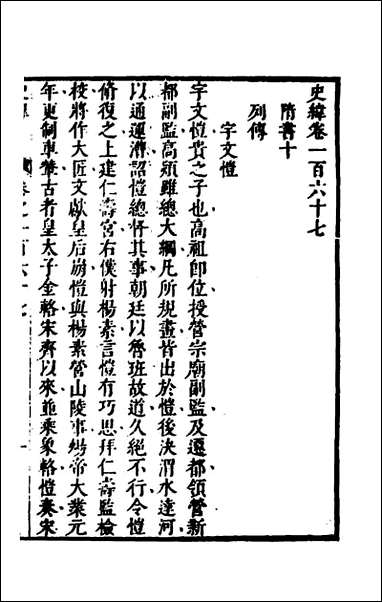 史緯卷一百六十七
隋書十
列傳
宇文愷
宇文愷貴之子也高祖即位授營宗廟副監及遷都領營新
都副監高熲雖總大綱凡所規畫皆出於愷後決渭水達河
以通運漕詔愷總督其事朝廷以魯班故道久絕不行令愷
脩復之上建仁壽宮右僕射楊素言愷有巧思拜仁壽監檢
校將作大匠文獻皇后崩愷與楊素營山陵事煬帝大業元
年更制車輦古者皇太子金輅宋齊以來並乘象輅愷奏宋